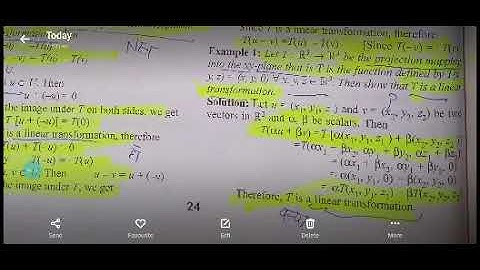 Today
NET
- T(u)
u ∈ U. Then
u · (-u) = 0
the image under T on both sides, we get
T [u + (-u)] = T(0)
is a linear transformation, therefore
T(u) + T(-u) = 0
T(-u) = -T(u)
Then u - v = u + (-v)
the image under T, we get
Since T is a linear transformation, therefore
T(u - v) = T(u) - T(v) [Since T(-v) =
Example 1: Let T : R³ → R³ be the projection mapping
into the xy-plane that is T is the function defined by T(x,
y, z) = (x, y, 0) ∀ x, y, z ∈ R. Then show that T is a linear
transformation.
Solution: Let u = (x₁, y₁, z₁) and v = (x₂, y₂, z₂) be two
vectors in R³ and α, β be scalars. Then
T(αu + βv) = T [α(x₁, y₁, z₁) + β(x₂, y₂, z₂)]
= T(αx₁ + βx₂, αy₁ + βy₂, αz₁ +
= (αx₁ + βx₂, αy₁ + βy₂, 0)
= α(x₁, y₁, 0) + β(x₂, y₂, 0)
= αT(x₁, y₁, z₁) + βT(x₂, y₂,
Therefore, T is a linear transformation.
24
Send Favourite Edit Delete More